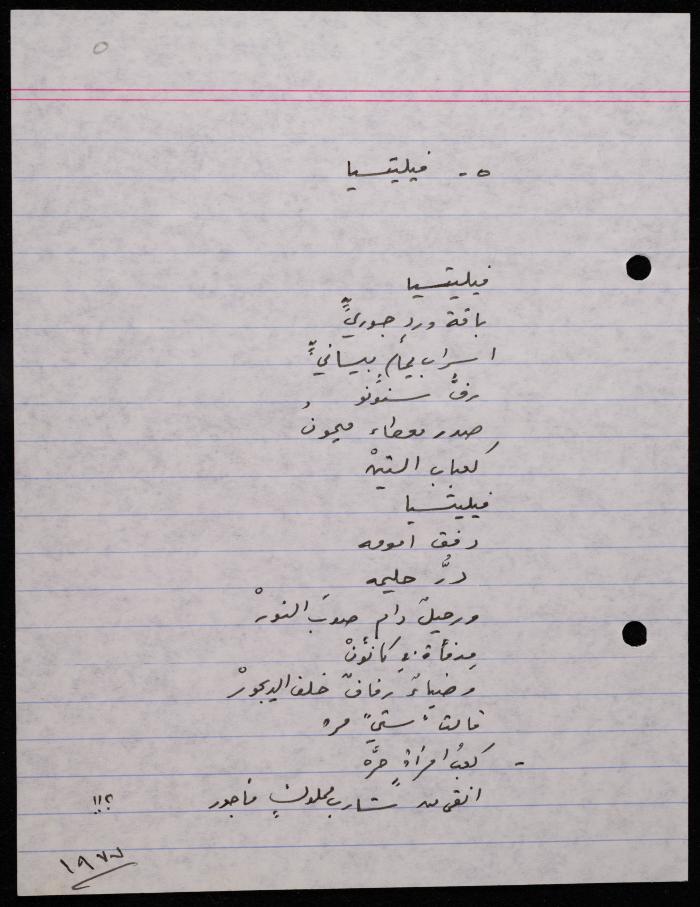 ٥ - فيليتسيا
فيليتسيا
باقة ورد جوريٍّ
اسراب يمامٍ بيسانيٍّ
رفُّ سنونو
صدر معطاء ميمونُ
كعباب التينْ
فيليتسيا
دفق امومه
درُّ حليمه
ورحيلٌ دام صوبَ النورْ
مدفأة في كانونْ
وضياءٌ رفافٌ خلف الديجورْ
قالت "ستي" مره
- كعبُ امرأةٍ حرَّه
انقى من شارب مملوكٍ مأجور ؟!!
١٩٧٧